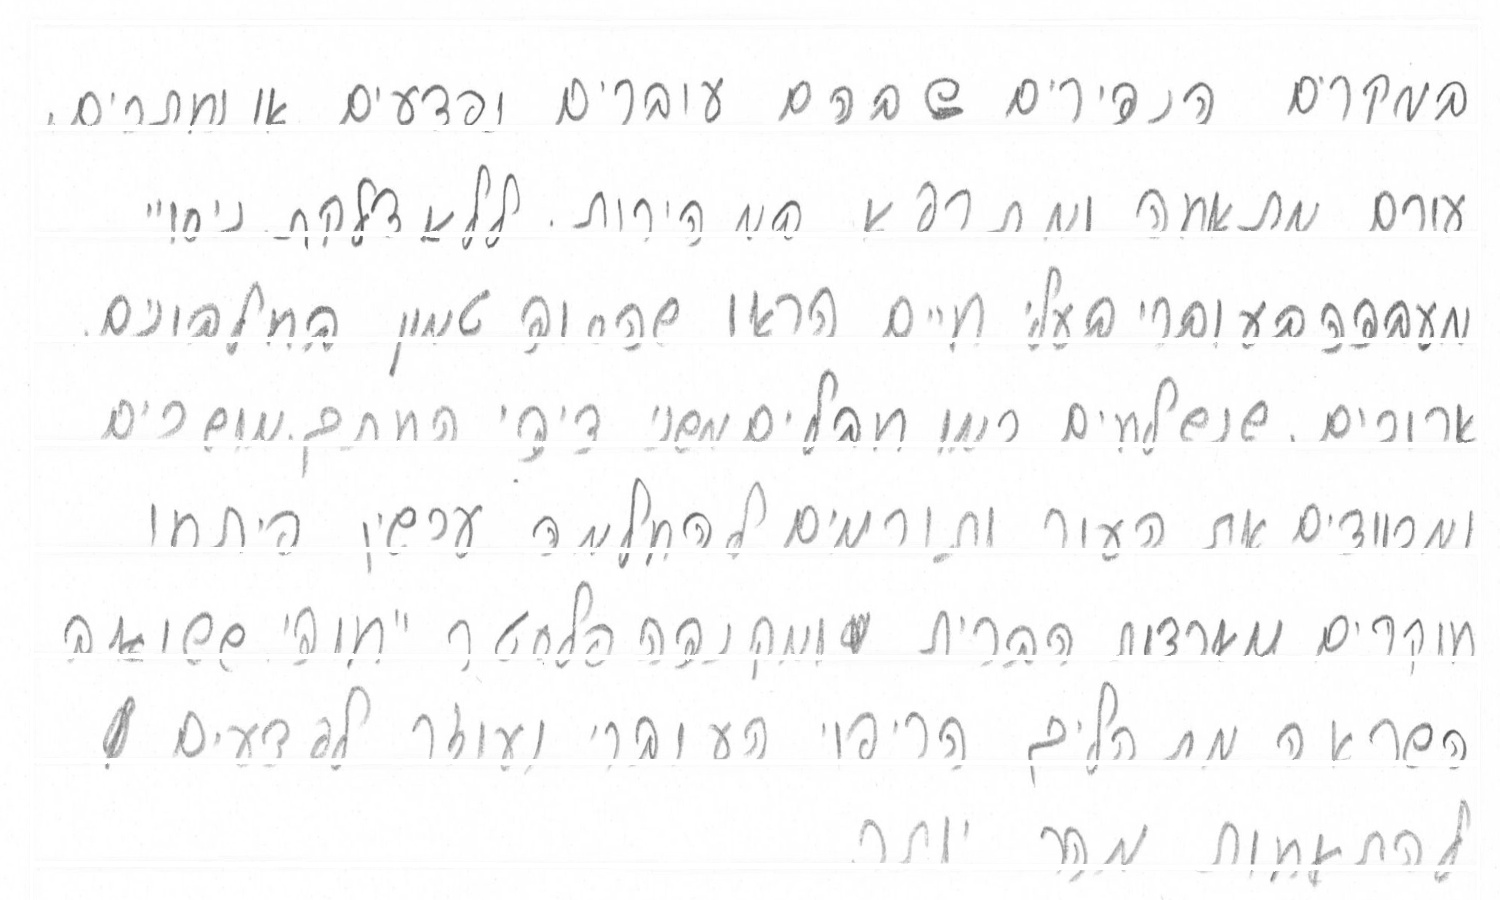 במקרים הנפירים שבהם עוברים ופדעים או ומתרים.
עורם מתאמה ומתרפא במהירות. ללא דלקת. ניסויי
ומעבפה בעוברי בעלי חיים הראו שהסוה טמון בחלבונים.
ארוכים. שנשלחים כמו חבלים משני צידי החתך. מושכים
ומכווצים את העור ותורמים להחלמה עכשין פיתחו
חוקרים מארצות הברית ומקנבה פלסטר "חופי" ששואה
השראה מתהליך הריפוי העוברי ועוזר לפצעים
להתאחות מהר יותר